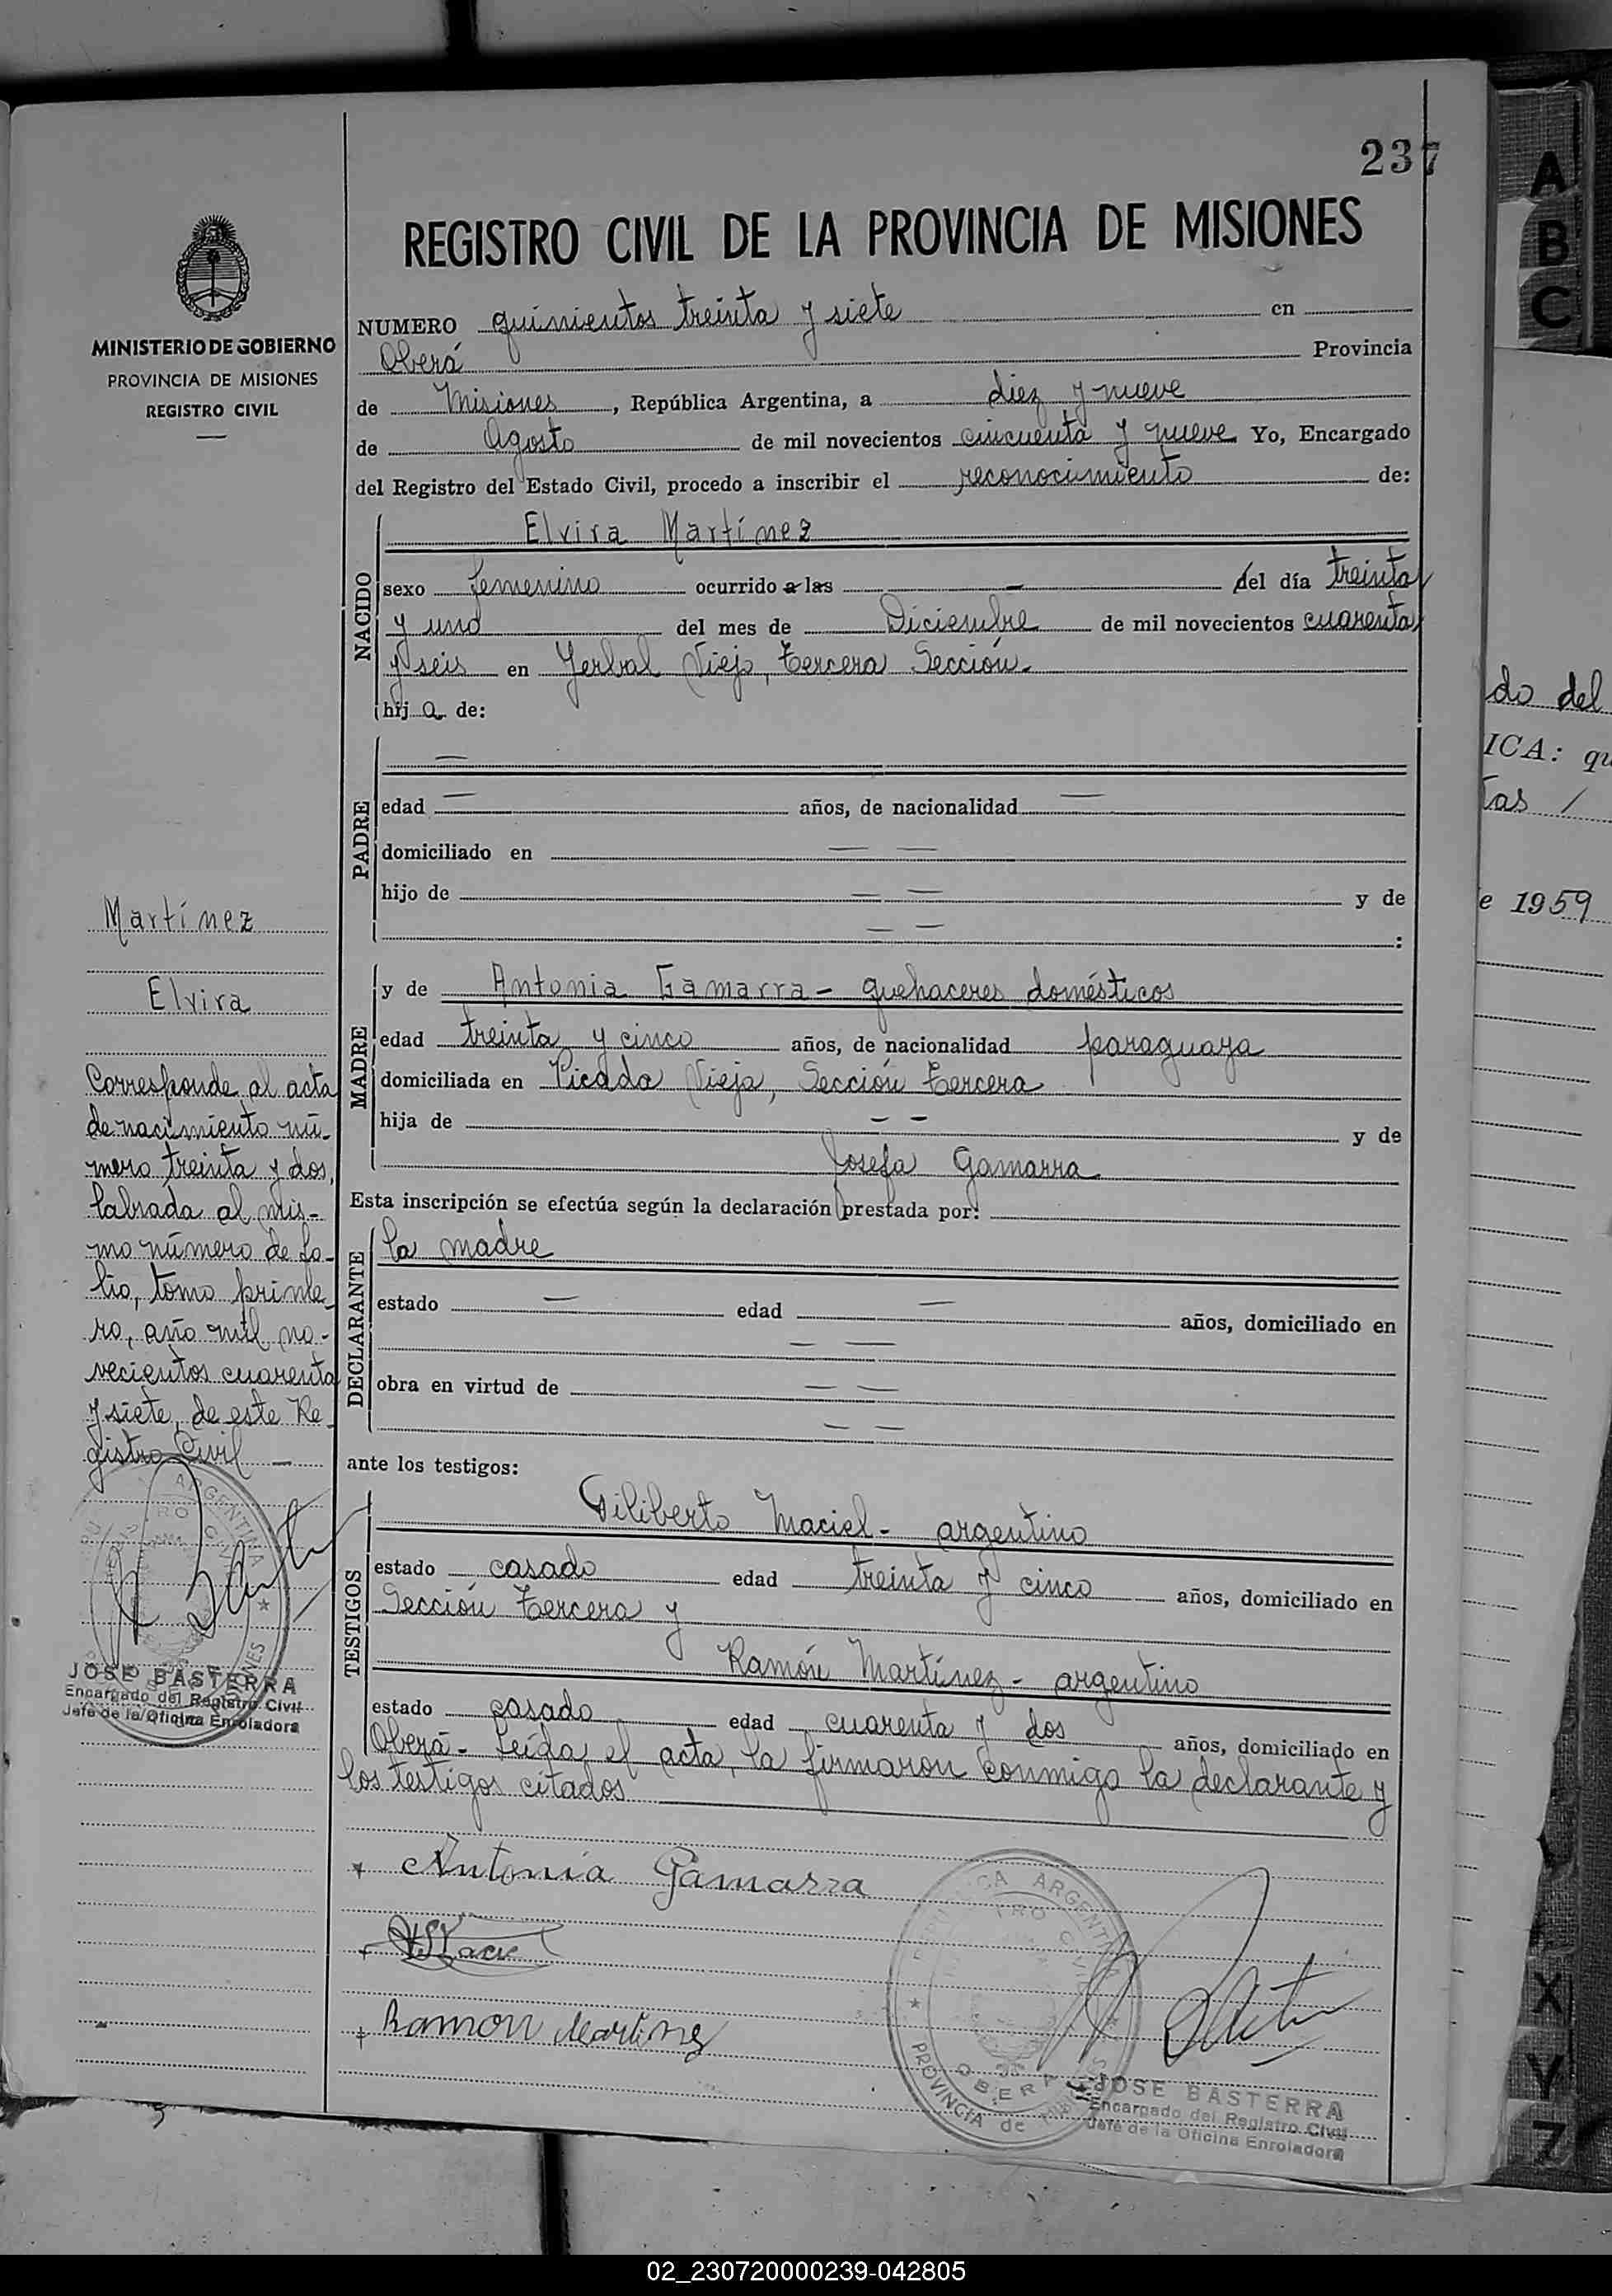 237
REGISTRO CIVIL DE LA PROVINCIA DE MISIONES
MINISTERIO DE GOBIERNO
PROVINCIA DE MISIONES
REGISTRO CIVIL
NUMERO quinientos treinta y siete en
Oberá Provincia
de Misiones, República Argentina, a diez y nueve
de Agosto de mil novecientos cincuenta y nueve Yo, Encargado
del Registro del Estado Civil, procedo a inscribir el reconocimiento de:
NACIDO
Elvira Martínez
sexo femenino ocurrido a las — del día treinta
y uno del mes de Diciembre de mil novecientos cuarenta
y seis en Yerbal Viejo, Tercera Sección.
hij a de:
PADRE
—
edad — años, de nacionalidad —
domiciliado en — —
hijo de — — y de
— — :
MADRE
y de Antonia Gamarra - quehaceres domésticos
edad treinta y cinco años, de nacionalidad paraguaya
domiciliada en Picada Vieja, Sección Tercera
hija de — — y de
Josefa Gamarra
Esta inscripción se efectúa según la declaración prestada por:
DECLARANTE
la madre
estado — edad — años, domiciliado en
— —
obra en virtud de — —
— —
ante los testigos:
TESTIGOS
Filiberto Maciel - argentino
estado casado edad treinta y cinco años, domiciliado en
Sección Tercera y
Ramón Martínez - argentino
estado casado edad cuarenta y dos años, domiciliado en
Oberá - Leída el acta, la firmaron conmigo la declarante y
los testigos citados
Antonia Gamarra
Ramon Martinez
Martínez
Elvira
Corresponde al acta
de nacimiento nú-
mero treinta y dos,
labrada al mis-
mo número de fo-
lio, tomo prime-
ro, año mil no-
vecientos cuarenta
y siete, de este Re-
gistro Civil —
JOSE BASTERRA
Encargado del Registro Civil
Jefe de la Oficina Enroladora
ARGENTINA
PROVINCIA de
OBERA
JOSE BASTERRA
Encargado del Registro Civil
Jefe de la Oficina Enroladora
do del
ICA: qu
tas /
e 1959
A
B
C
X
Y
Z
02_230720000239-042805